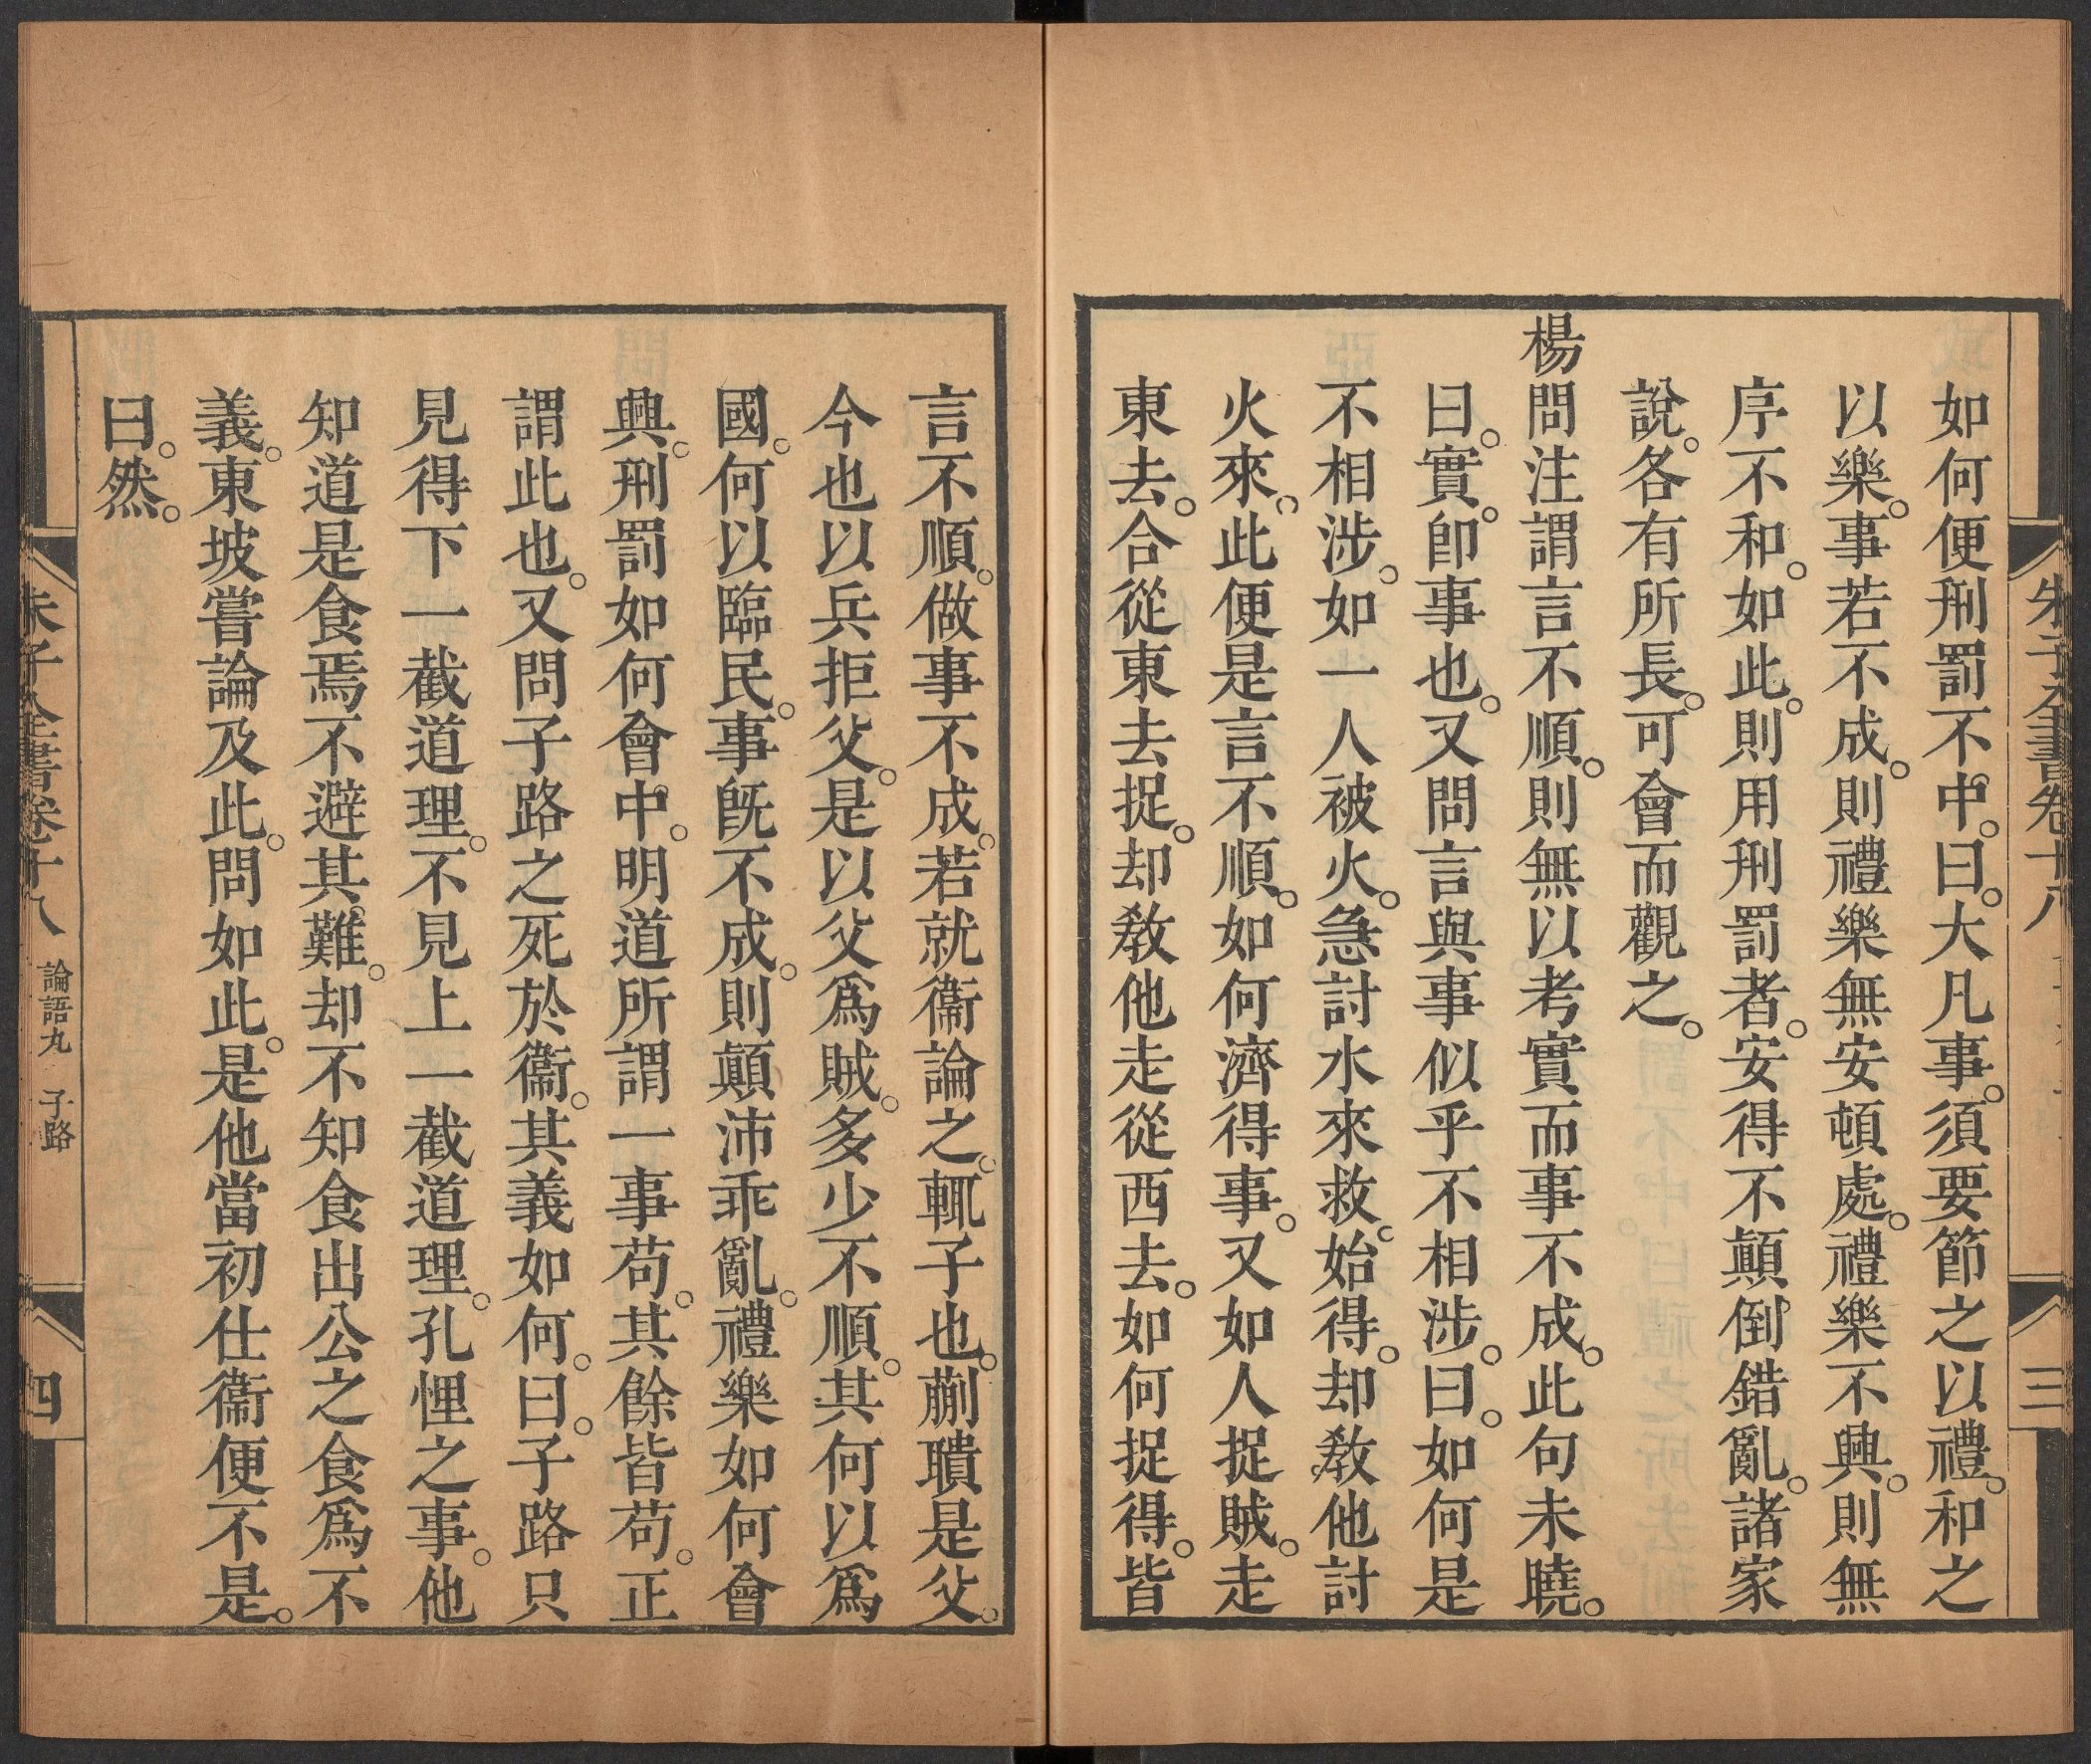 朱子全書卷十八
三
如何便刑罰不中。曰。大凡事。須要節之以禮。和之
以樂。事若不成。則禮樂無安頓處。禮樂不興。則無
序不和。如此。則用刑罰者。安得不顛倒錯亂。諸家
說。各有所長。可會而觀之。
楊問注謂言不順。則無以考實而事不成。此句未曉。
曰。實。卽事也。又問言與事似乎不相涉。曰。如何是
不相涉。如一人被火。急討水來救。始得。却敎他討
火來。此便是言不順。如何濟得事。又如人捉賊。走
東去。合從東去捉。却敎他走從西去。如何捉得。皆
言不順。做事不成。若就衞論之。輒子也。蒯聵是父。
今也以兵拒父。是以父爲賊。多少不順。其何以爲
國。何以臨民。事旣不成。則顛沛乖亂。禮樂如何會
興。刑罰如何會中。明道所謂一事苟。其餘皆苟。正
謂此也。又問子路之死於衞。其義如何。曰。子路只
見得下一截道理。不見上一截道理。孔悝之事。他
知道是食焉不避其難。却不知食出公之食爲不
義。東坡嘗論及此。問如此。是他當初仕衞便不是。
曰。然。
朱子全書卷十八 論語九 子路
四